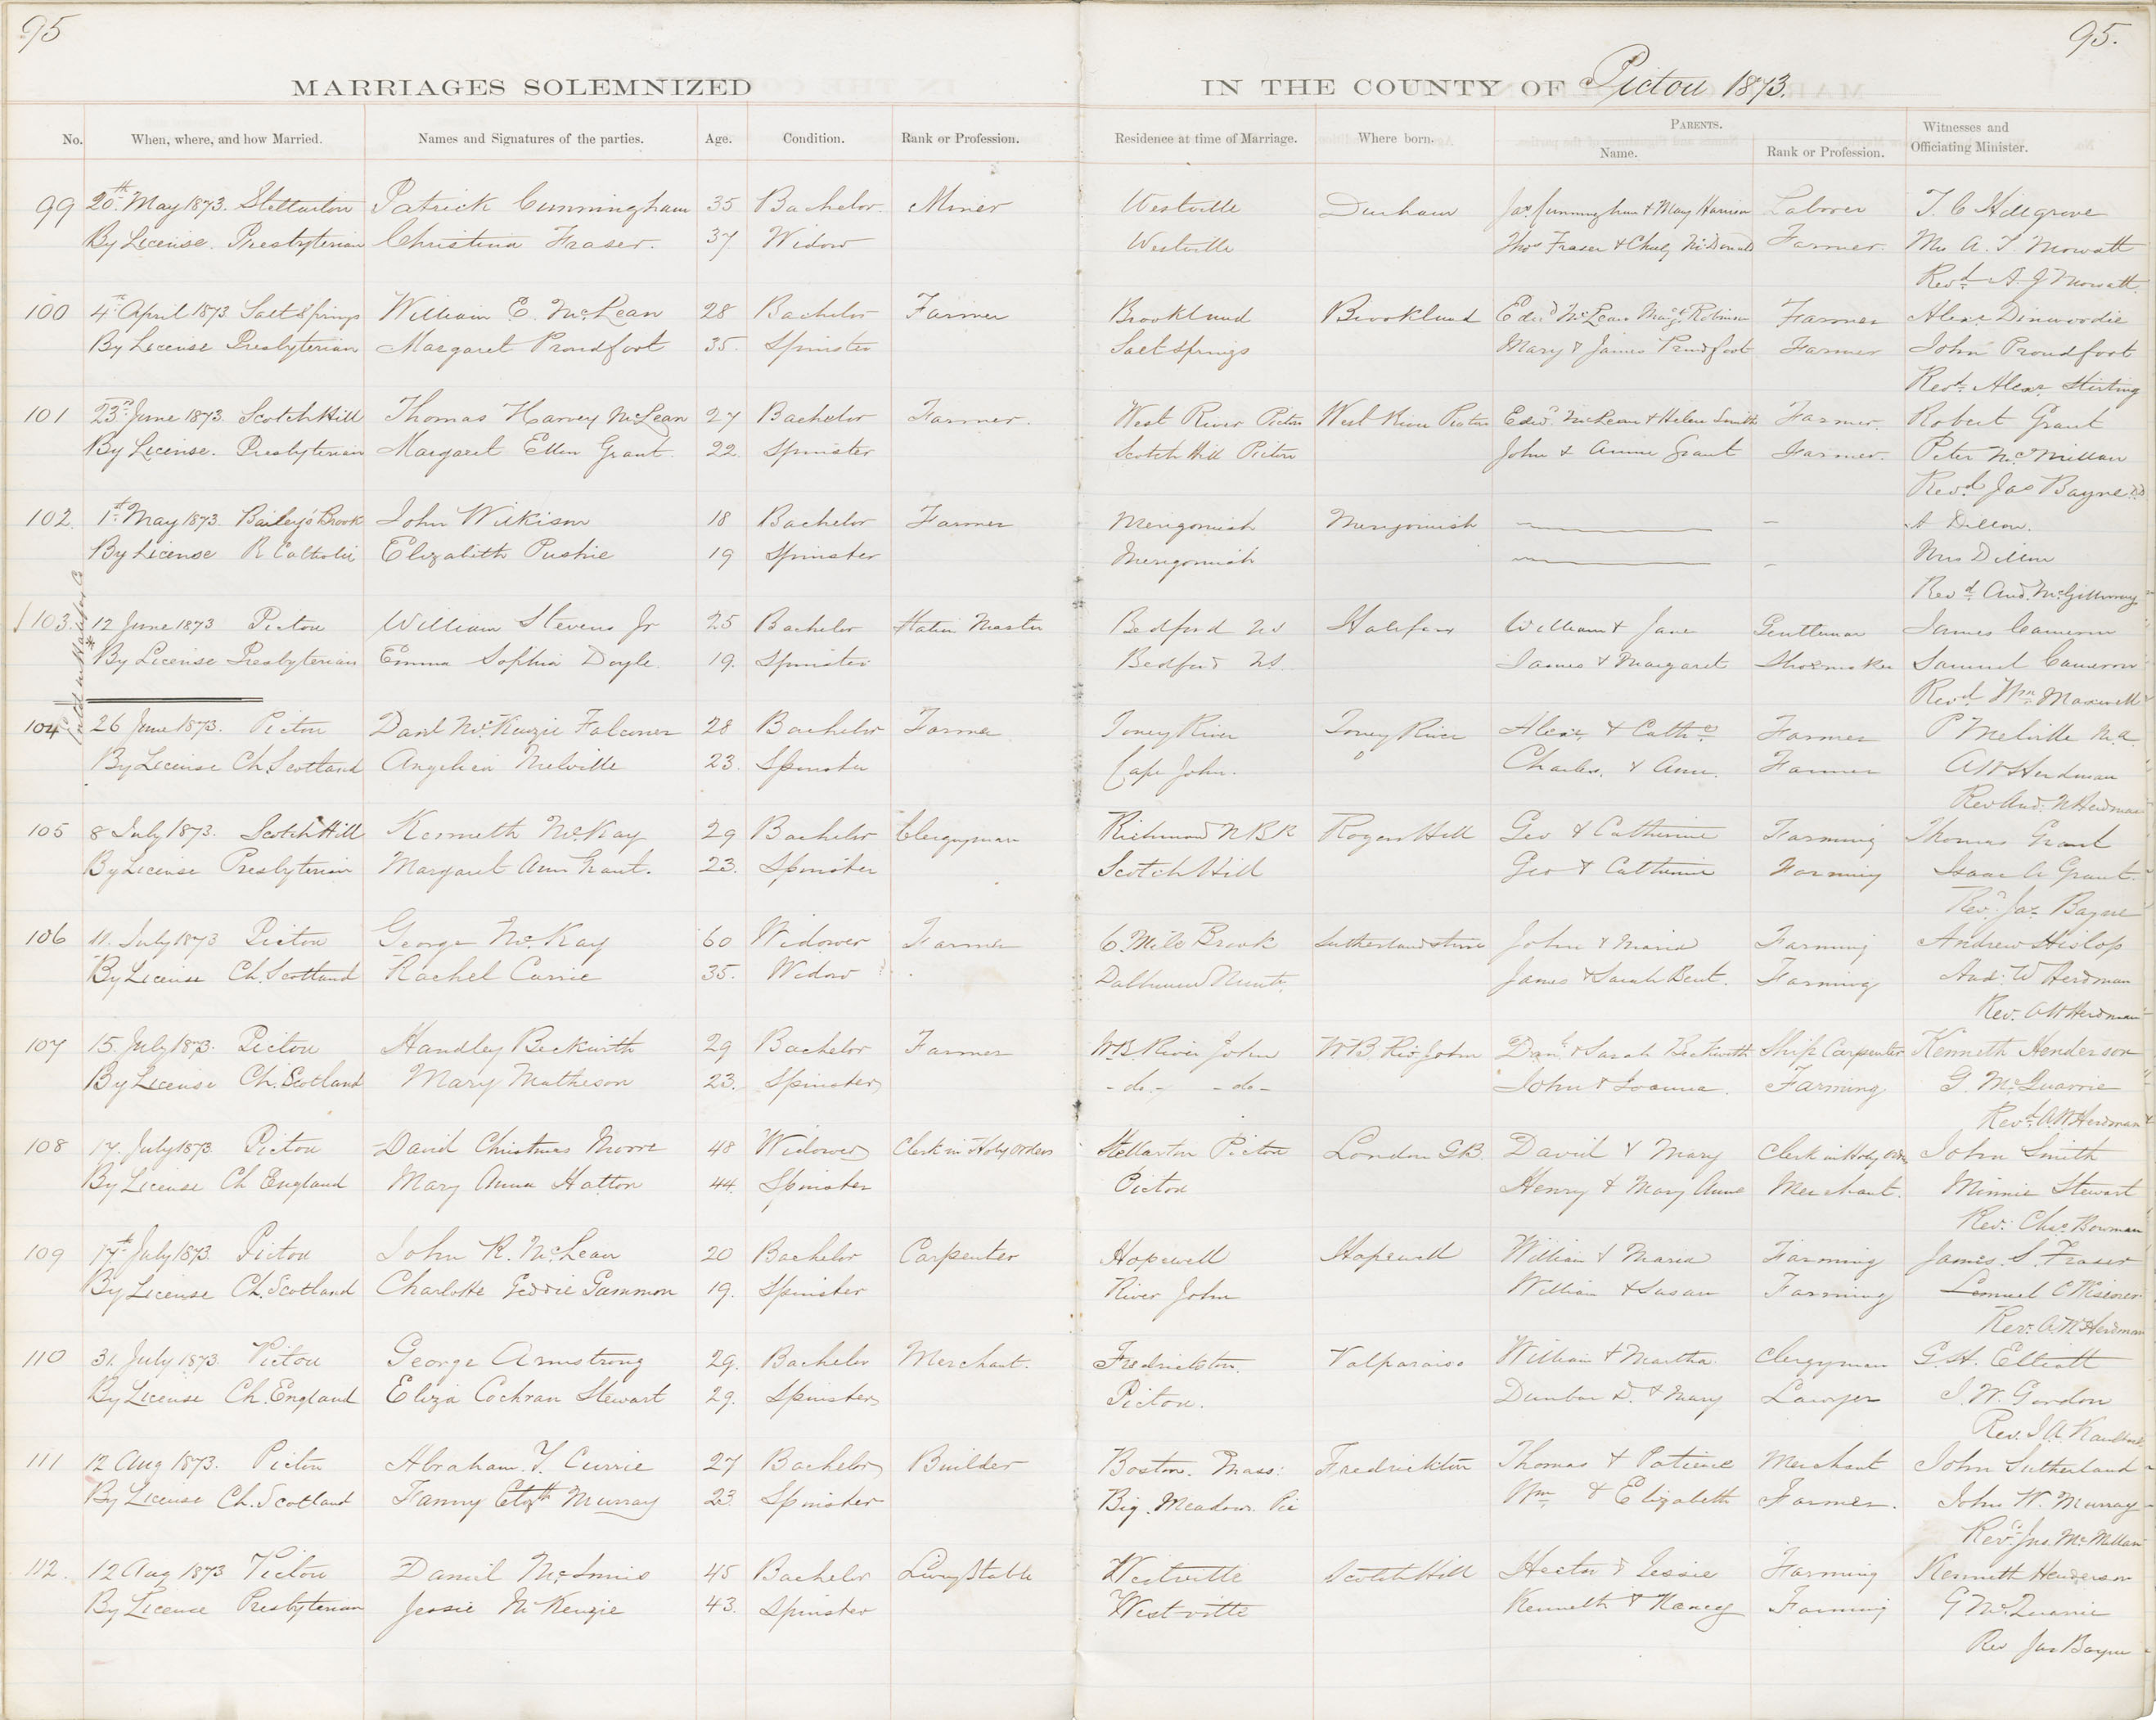 95
95.
MARRIAGES SOLEMNIZED IN THE COUNTY OF Pictou 1873.
No. When, where, and how Married. Names and Signatures of the parties. Age. Condition. Rank or Profession. Residence at time of Marriage. Where born. PARENTS. Name. Rank or Profession. Witnesses and Officiating Minister.
99 20th May 1873. Stellarton Patrick Cunningham 35 Bachelor Miner Westville Durham Jas Cunningham & Mary Laborer T. C Hillgrove
By License. Presbyterian Christina Fraser. 37 Widow Westville Thos Fraser & McDonald Farmer. Mrs A. J. Mowatt
Revd A. J Mowatt.
100 4th April 1873. Salt Springs William E. McLean 28 Bachelor Farmer Brookland Brookland Edwd McLean Margt Robinson Farmer Alexr Dinwoodie
By License Presbyterian Margaret Proudfoot 35. Spinster Salt Springs Mary & James Proudfoot Farmer John Proudfoot
Revd Alexr Stirling
101 23rd June 1873. Scotch Hill Thomas Harvey McLean 27 Bachelor Farmer. West River Pictou West River Pictou Edwd McLean & Helen Smith Farmer. Robert Grant
By License. Presbyterian Margaret Ellen Grant 22. Spinster Scotch Hill Pictou John & Annie Grant Farmer. Peter McMillan
Revd Jas Bayne DD
102. 1st May 1873. Bailey's Brook John Wilkison 18 Bachelor Farmer Merigomish Merigomish — — A Dillon.
By License R Catholic Elizabeth Pushie 19 Spinster Merigomish — — Mrs Dillon
Revd And. McGillivray
103. 12 June 1873 Pictou William Stevens Jr 25 Bachelor Station Master Bedford NS Halifax William & Jane Gentleman James Cameron
By License Presbyterian Emma Sophia Doyle. 19. Spinster Bedford NS. James & Margaret Shoemaker Samuel Cameron
Revd Wm Maxwell
104 26 June 1873. Pictou Danl McKenzie Falconer 28 Bachelor Farmer Toney River Toney River Alexr & Cathe Farmer P Melville M.A.
By License Ch. Scotland Angelica Melville 23. Spinster Cape John. Charles, & Ann. Farmer A W Herdman
Rev And. W Herdman
105 8 July 1873. Scotch Hill Kenneth McKay 29 Bachelor Clergyman Richmond N B R Rogers Hill Geo & Catherine Farming Thomas Grant
By License Presbyterian Margaret Ann Grant. 23. Spinster Scotch Hill Geo & Catherine Farming Isaac A Grant.
Rev. Jas Bayne
106 11. July 1873 Pictou George McKay 60 Widower Farmer 6 Mile Brook Sutherlandshire John & Maria Farming Andrew Hislop
By License Ch. Scotland Rachel Currie 35. Widow James & Sarah Bent. Farming And: W Herdman
Rev. A W Herdman
107 15. July 1873. Pictou Handley Beckwith 29 Bachelor Farmer W.B. River John W B. Riv. John Danl & Sarah Beckwith Ship Carpenter Kenneth Henderson
By License Ch. Scotland Mary Matheson 23. Spinster - do - - do - John & Joanna Farming G. McQuarrie
Revd A W Herdman
108 17. July 1873. Pictou David Christmas Moore 48 Widower Clerk in Holy Orders Stellarton Pictou London G.B. David & Mary Clerk in Holy Orders John Smith
By License Ch England Mary Anna Hatton 44. Spinster Pictou Henry & Mary Anne Merchant. Minnie Stewart
Rev. Chas Bowman
109 17th July 1873. Pictou John R. McLean 20 Bachelor Carpenter Hopewell Hopewell William & Maria Farming James. S. Fraser
By License Ch. Scotland Charlotte Geddie Gammon 19. Spinster River John William & Susan Farming Lemuel C Misener
Rev. A. W Herdman
110 31. July 1873. Pictou George Armstrong 29. Bachelor Merchant. Fredricton. Valparaiso William & Martha Clergyman G. H. Elliott
By License Ch. England Eliza Cochran Stewart 29. Spinster Pictou. Dunbar D. & Mary Lawyer J. W. Gordon
Rev. J. A. Kaulback
111 12 Aug 1873. Pictou Abraham. T. Currie 27 Bachelor Builder Boston. Mass: Fredrickton Thomas & Patience Merchant John Sutherland
By License Ch. Scotland Fanny Elizth Murray 23. Spinster Big. Meadows. Pic Wm & Elizabeth Farmer. John W. Murray
Revd Jno. McMillan
112. 12 Aug 1873 Pictou Daniel McInnis 45 Bachelor Livery Stable Westville Scotch Hill Hector & Jessie Farming Kenneth Henderson
By License Presbyterian Jessie McKenzie 43. Spinster Westville Kenneth & Nancy Farming G McQuarrie
Rev Jas Bayne